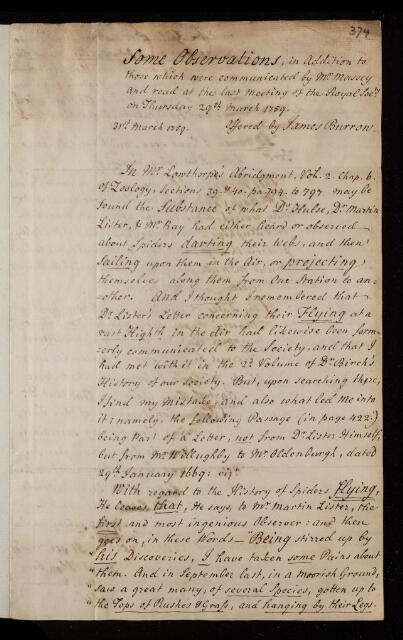 374
Some Observations, in Addition to
those which were communicated by Mr. Massey
and read at the last meeting of the Royal Socy.
on Thursday 29th. March 1759.
31st. March 1759. Offered by James Burrow
In Mr. Lowthorp's Abridgment, Vol. 2. Chap. 6.
of Zoology, Sections 39. & 40. pa. 794. to 797. may be
found the Substance of what Dr. Hulse, Dr. Martin
Lister, & Mr. Ray had either heard or observed
about Spiders darting their Webs, and then
sailing upon them in the Air, or projecting
themselves along them from One Station to an-
other. And I thought I remembered that
Dr. Lister's Letter concerning their Flying at a
vast Highth in the Air had likewise been form-
erly communicated to the Society, and that I
had met with it in the 2d. Volume of Dr. Birch's
History of our Society. But, upon searching there,
I find my Mistake, and also what led Me into
it; namely, the following Passage (in page 422.)
being Part of a Letter, not from Dr. Lister Himself,
but from Mr. Willughby to Mr. Oldenburgh, dated
29th. January 1669: vizt.
With regard to the History of Spiders flying,
He leaves that, He says, to Mr. Martin Lister, the
first and most ingenious Observer: and then
goes on, in these Words — "Being stirred up by
"his Discoveries, I have taken some Pains about
"them. And in September last, in a Moorish Ground,
"saw a great many, of several Species, gotten up to
"the Tops of Rushes & Grass, and hanging by their Legs.